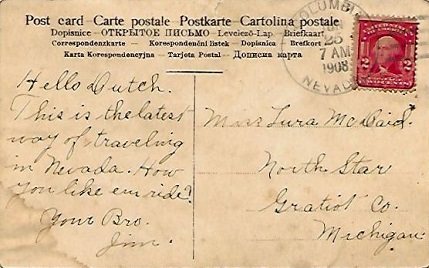 Post card Carte postale Postkarte Cartolina postale
Dopisnice - ОТКРЫТОЕ ПИСЬМО - Levelező-Lap - Briefkaart
Correspondenzkarte - Korespondenční lístek - Dopisnica - Brefkort
Karta Korespondencyjna - Tarjeta Postal - Дописна карта
COLUMBUS
25
7 AM
1908
NEVADA
2 2
Hello Dutch.
This is the latest
way of traveling
in Nevada. How
you like em ride?
Your Bro.
Jim.
Miss Lura McDaid.
North Star
Gratiot Co.
Michigan.